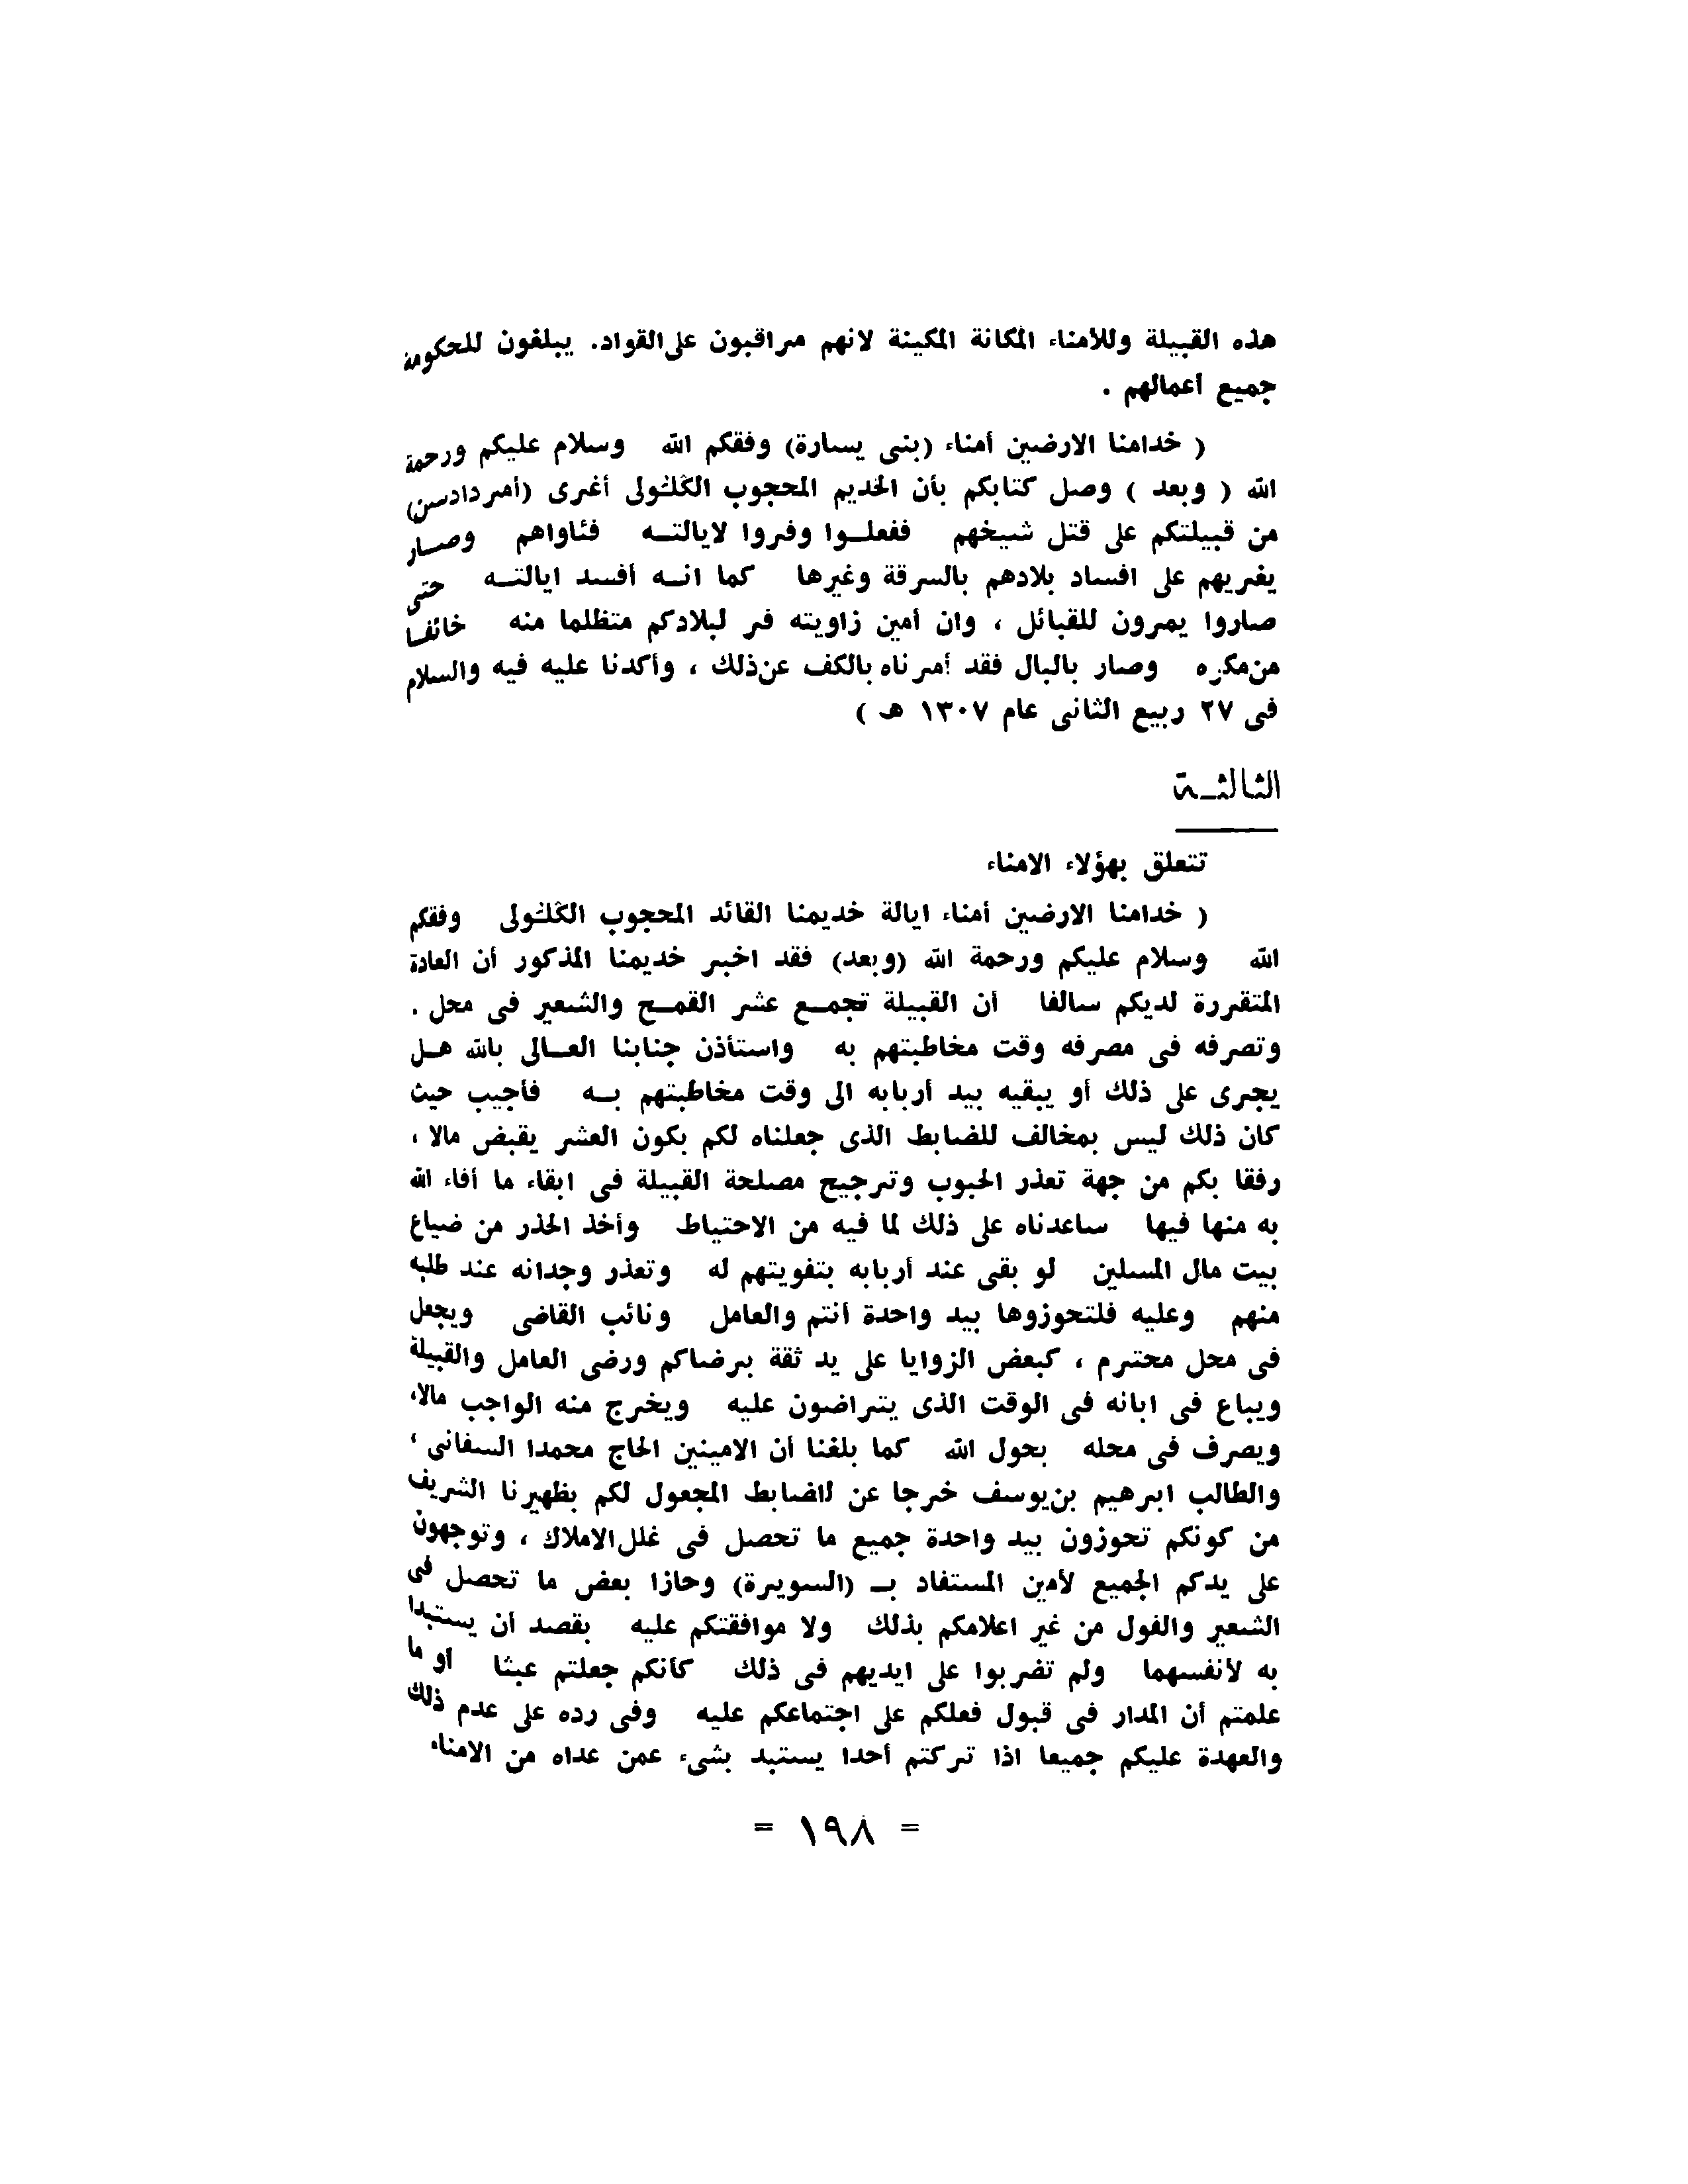 هذه القبيلة وللأمناء المكانة المكينة لانهم مراقبون على القواد. يبلغون للحكومة
جميع أعمالهم .
( خدامنا الارضين أمناء (بنى يسارة) وفقكم الله وسلام عليكم ورحمة
الله ( وبعد ) وصل كتابكم بأن الخديم المحجوب الكلولى أغرى (أمردادسن)
من قبيلتكم على قتل شيخهم ففعلـوا وفروا لايالتـه فئاواهم وصـار
يغريهم على افساد بلادهم بالسرقة وغيرها كما انـه أفسد ايالتـه حتى
صاروا يمرون للقبائل ، وان أمين زاويته فر لبلادكم متظلما منه خائفـا
من مكره وصار بالبال فقد أمرناه بالكف عن ذلك ، وأكدنا عليه فيه والسلام
فى ٢٧ ربيع الثانى عام ١٣٠٧ هـ )
الثالثـة
تتعلق بهؤلاء الامناء
( خدامنا الارضين أمناء ايالة خديمنا القائد المحجوب الكلولى وفقكم
الله وسلام عليكم ورحمة الله (وبعد) فقد اخبر خديمنا المذكور أن العادة
المتقررة لديكم سالفا أن القبيلة تجمـع عشر القمـح والشعير فى محل .
وتصرفه فى مصرفه وقت مخاطبتهم به واستأذن جنابنا العـالى بالله هـل
يجرى على ذلك أو يبقيه بيد أربابه الى وقت مخاطبتهم بـه فأجيب حيث
كان ذلك ليس بمخالف للضابط الذى جعلناه لكم بكون العشر يقبض مالا ،
رفقا بكم من جهة تعذر الحبوب وترجيح مصلحة القبيلة فى ابقاء ما أفاء الله
به منها فيها ساعدناه على ذلك لما فيه من الاحتياط وأخذ الحذر من ضياع
بيت مال المسلين لو بقى عند أربابه بتفويتهم له وتعذر وجدانه عند طلبه
منهم وعليه فلتحوزوها بيد واحدة أنتم والعامل ونائب القاضى ويجعل
فى محل محترم ، كبعض الزوايا على يد ثقة برضاكم ورضى العامل والقبيلة
ويباع فى ابانه فى الوقت الذى يتراضون عليه ويخرج منه الواجب مالا،
ويصرف فى محله بحول الله كما بلغنا أن الامينين الحاج محمدا السفانى ،
والطالب ابرهيم بن يوسف خرجا عن لاضابط المجعول لكم بظهيرنا الشريف
من كونكم تحوزون بيد واحدة جميع ما تحصل فى غلل الاملاك ، وتوجهون
على يدكم الجميع لأمين المستفاد بـ (السويرة) وحازا بعض ما تحصل فى
الشعير والفول من غير اعلامكم بذلك ولا موافقتكم عليه بقصد أن يستبدا
به لأنفسهما ولم تضربوا على ايديهم فى ذلك كأنكم جعلتم عبثا أو ما
علمتم أن المدار فى قبول فعلكم على اجتماعكم عليه وفى رده على عدم ذلك
والعهدة عليكم جميعا اذا تركتم أحدا يستبد بشىء عمن عداه من الامناء
= ١٩٨ =